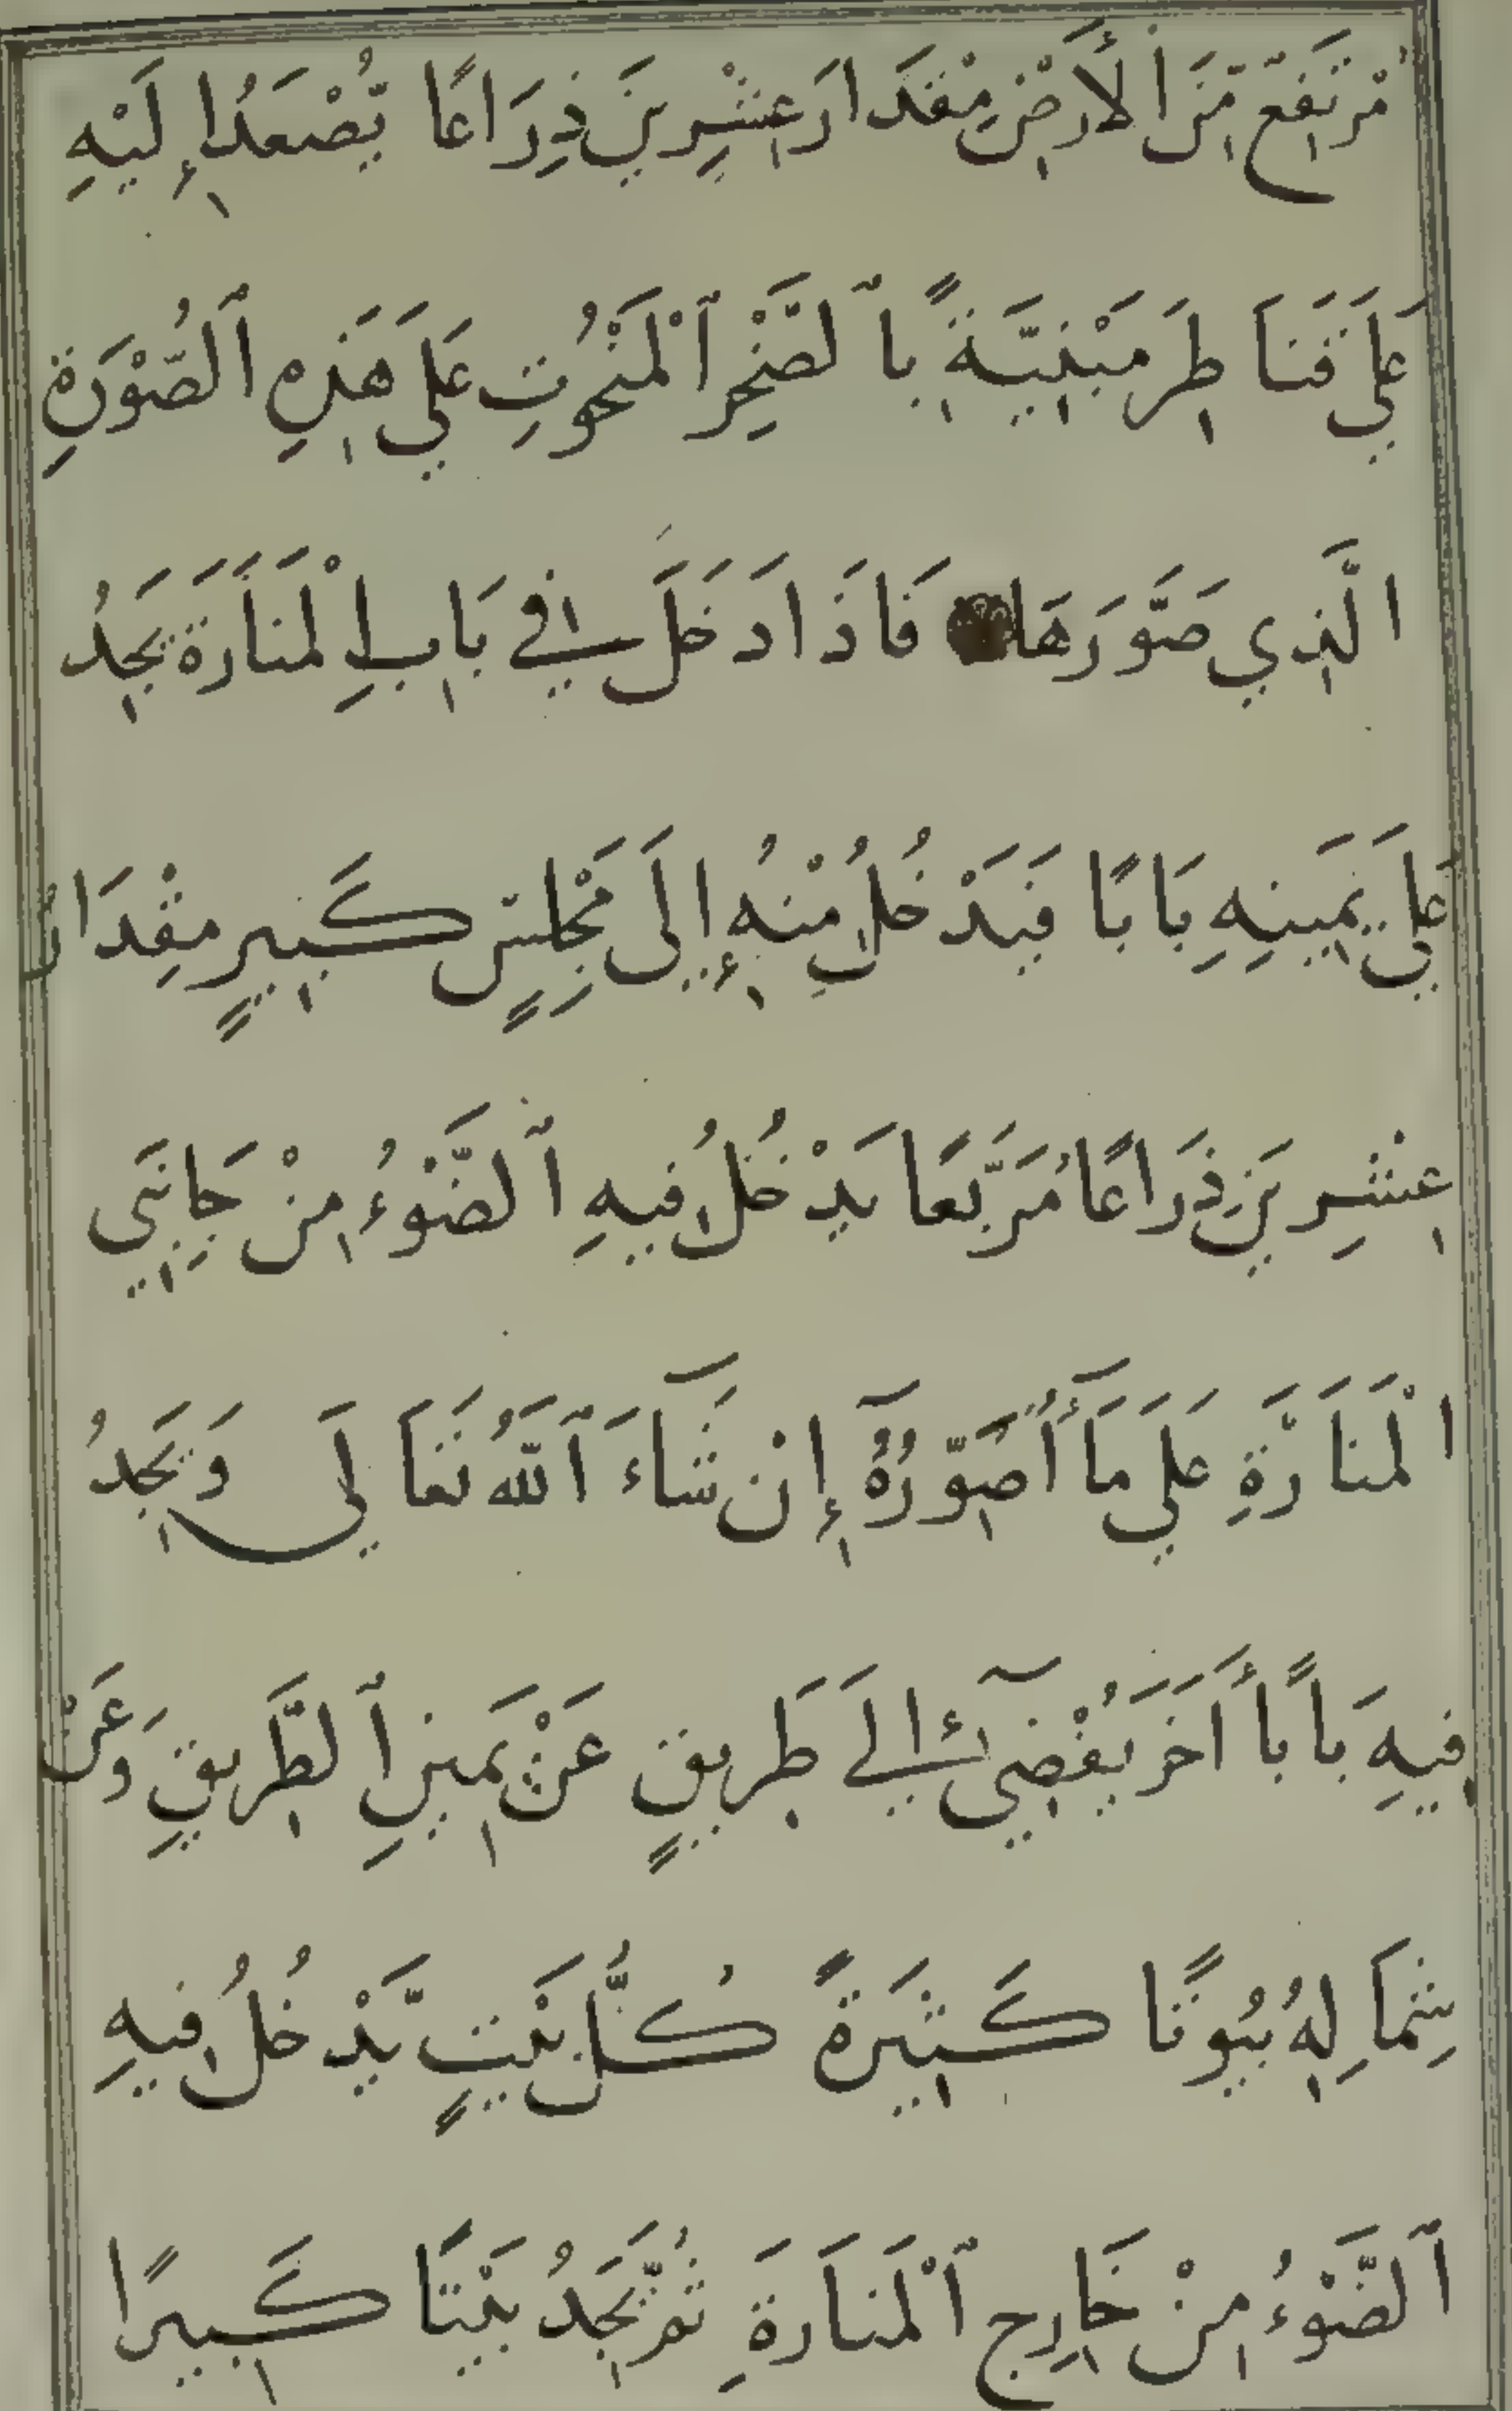 مُرْتَفِعٌ مِّنَ الْأَرْضِ مِقْدَارَ عِشْرِينَ ذِرَاعًا يُّصْعَدُ إِلَيْهِ
عَلَى قَنَاطِرَ مَبْنِيَّةً بِٱلصَّخْرِ ٱلْمَنْحُوتِ عَلَى هَذِهِ ٱلصُّوْرَةِ
الَّذِي صَوَّرَهَا فَاذَا دَخَلَ فِي بَابِ الْمَنَارَةِ يَجِدُ
عَلَى يَمِينِهِ بَابًا فَيَدْخُلُ مِنْهُ إِلَى مَجْلِسٍ كَبِيرٍ مِقْدَارُ
عِشْرِينَ ذِرَاعًا مُرَبَّعًا يَدْخُلُ فِيهِ ٱلضَّوْءُ مِنْ جَانِبَيِ
الْمَنَارَةِ عَلَى مَآ أُصَوِّرُهُ إِنْ شَآءَ ٱللّٰهُ تَعَالَى وَيَجِدُ
فِيهِ بَابًا أَخَرَ يُفْضِي إِلَى طَرِيقٍ عَنْ يَمِينِ ٱلطَّرِيقِ وَعَنْ
شِمَالِهِ بُيُوتًا كَثِيرَةً كُلُّ بَيْتٍ يَّدْخُلُ فِيهِ
ٱلضَّوْءُ مِنْ خَارِجِ ٱلْمَنَارَةِ ثُمَّ يَجِدُ بَيْتًا كَبِيرًا